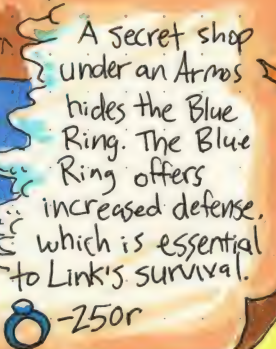 A secret shop
under an Armos
hides the Blue
Ring. The Blue
Ring offers
increased defense,
which is essential
to Link's survival.
-250r